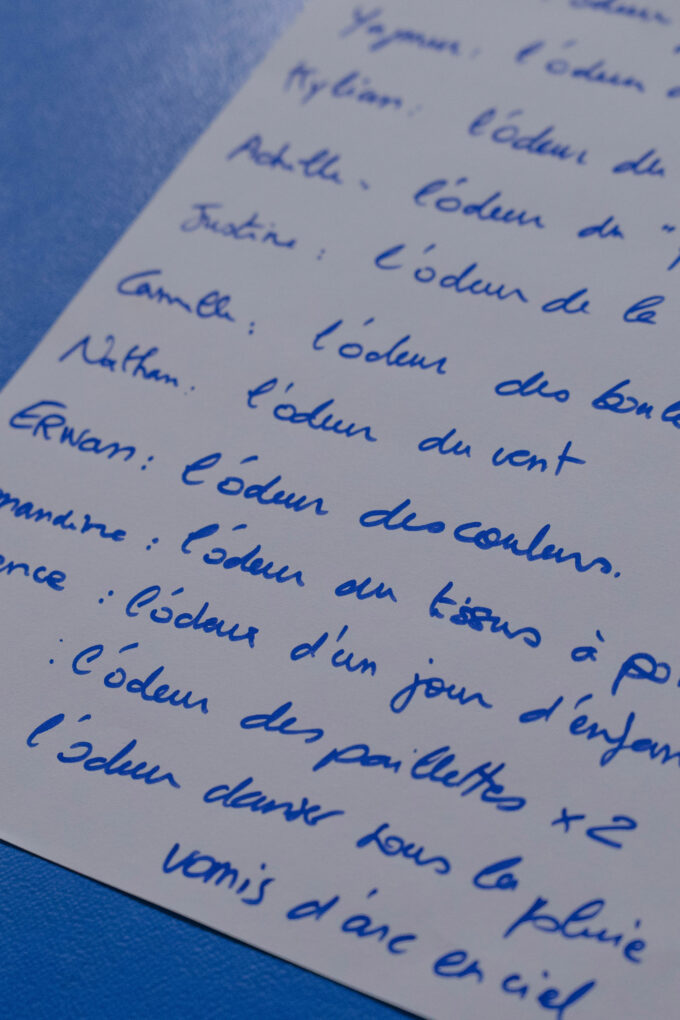 l'ódeur
: l'ódeur
Kylian : l'ódeur du
Achille - l'ódeur du "
Justine : l'ódeur de la
Camille : l'ódeur des
Nathan : l'ódeur du vent
ERWan : l'ódeur des couleurs.
mandine : l'ódeur du tissus à
ence : l'ódeur d'un jour d'enfan
: l'ódeur des paillettes x2
l'ódeur danser sous la pluie
vomis d'arc en ciel